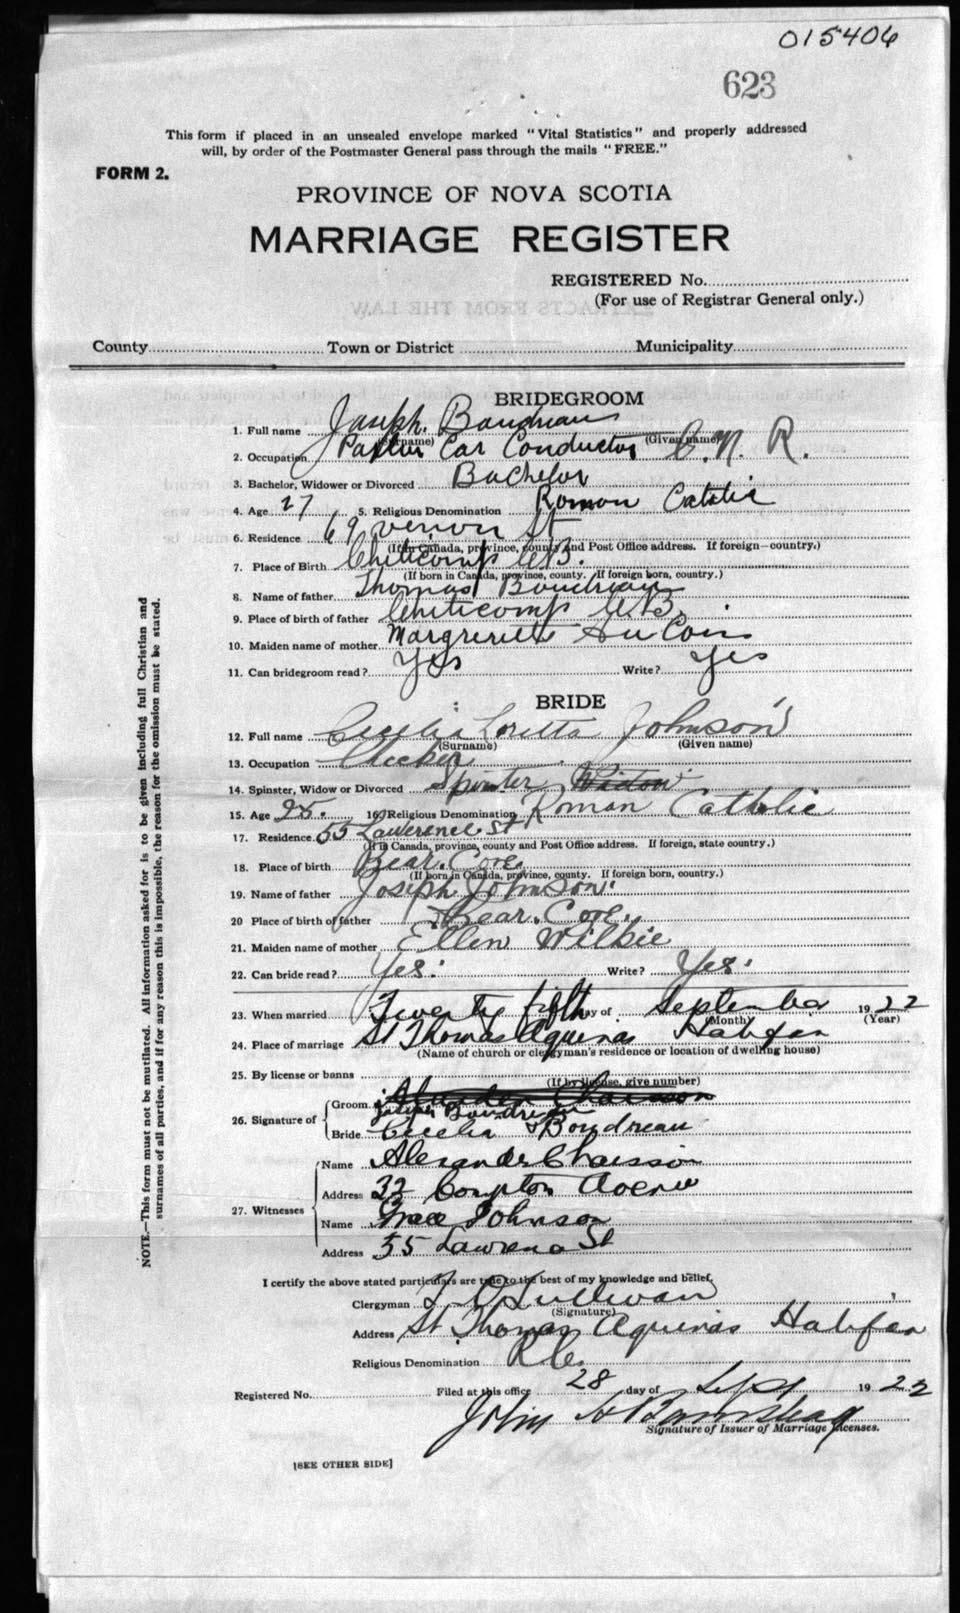 015406
623
This form if placed in an unsealed envelope marked "Vital Statistics" and properly addressed
will, by order of the Postmaster General pass through the mails "FREE."
FORM 2.
PROVINCE OF NOVA SCOTIA
MARRIAGE REGISTER
REGISTERED No.
(For use of Registrar General only.)
County Town or District Municipality
BRIDEGROOM
1. Full name Joseph Boudreau
(Surname) (Given name)
2. Occupation Parlor Car Conductor C. N. R.
3. Bachelor, Widower or Divorced Bachelor
4. Age 27 5. Religious Denomination Roman Catolic
6. Residence 69 vernon St
(If in Canada, province, county and Post Office address. If foreign—country.)
7. Place of Birth Cheticomp C.B.
(If born in Canada, province, county. If foreign born, country.)
8. Name of father Thomas Boudreau
9. Place of birth of father Cheticomp C.B.
10. Maiden name of mother Margreriette Au Coin
11. Can bridegroom read? Yes Write? yes
BRIDE
12. Full name Cecelia Loretta Johnson
(Surname) (Given name)
13. Occupation Checker
14. Spinster, Widow or Divorced Spinster Widow
15. Age 25. 16. Religious Denomination Roman Catholic
17. Residence 55 Lawerence St
(If in Canada, province, county and Post Office address. If foreign, state country.)
18. Place of birth Bear. Cove
(If born in Canada, province, county. If foreign born, country.)
19. Name of father Joseph Johnson.
20 Place of birth of father Bear. Cove.
21. Maiden name of mother Ellen Wilkie
22. Can bride read? Yes. Write? Yes.
23. When married Twenty fifth day of September 1922
(Month) (Year)
24. Place of marriage St Thomas Aquinas Halifax
(Name of church or clergyman's residence or location of dwelling house)
25. By license or banns
(If by license, give number)
26. Signature of Groom Joseph Boudreau
Bride Cecelia Boudreau
27. Witnesses Name Alexander Chaisson
Address 32 Compton Avenue
Name Grace Johnson
Address 55 Lawrence St
I certify the above stated particulars are true to the best of my knowledge and belief,
Clergyman O'Sullivan
(Signature)
Address St Thomas Aquinas Halifax
Religious Denomination R.C.
Registered No. Filed at this office 28 day of Sept 1922
John
Signature of Issuer of Marriage Licenses.
[SEE OTHER SIDE]
NOTE.—This form must not be mutilated. All information asked for is to be given including full Christian and
surnames of all parties, and if for any reason this is impossible, the reason for the omission must be stated.